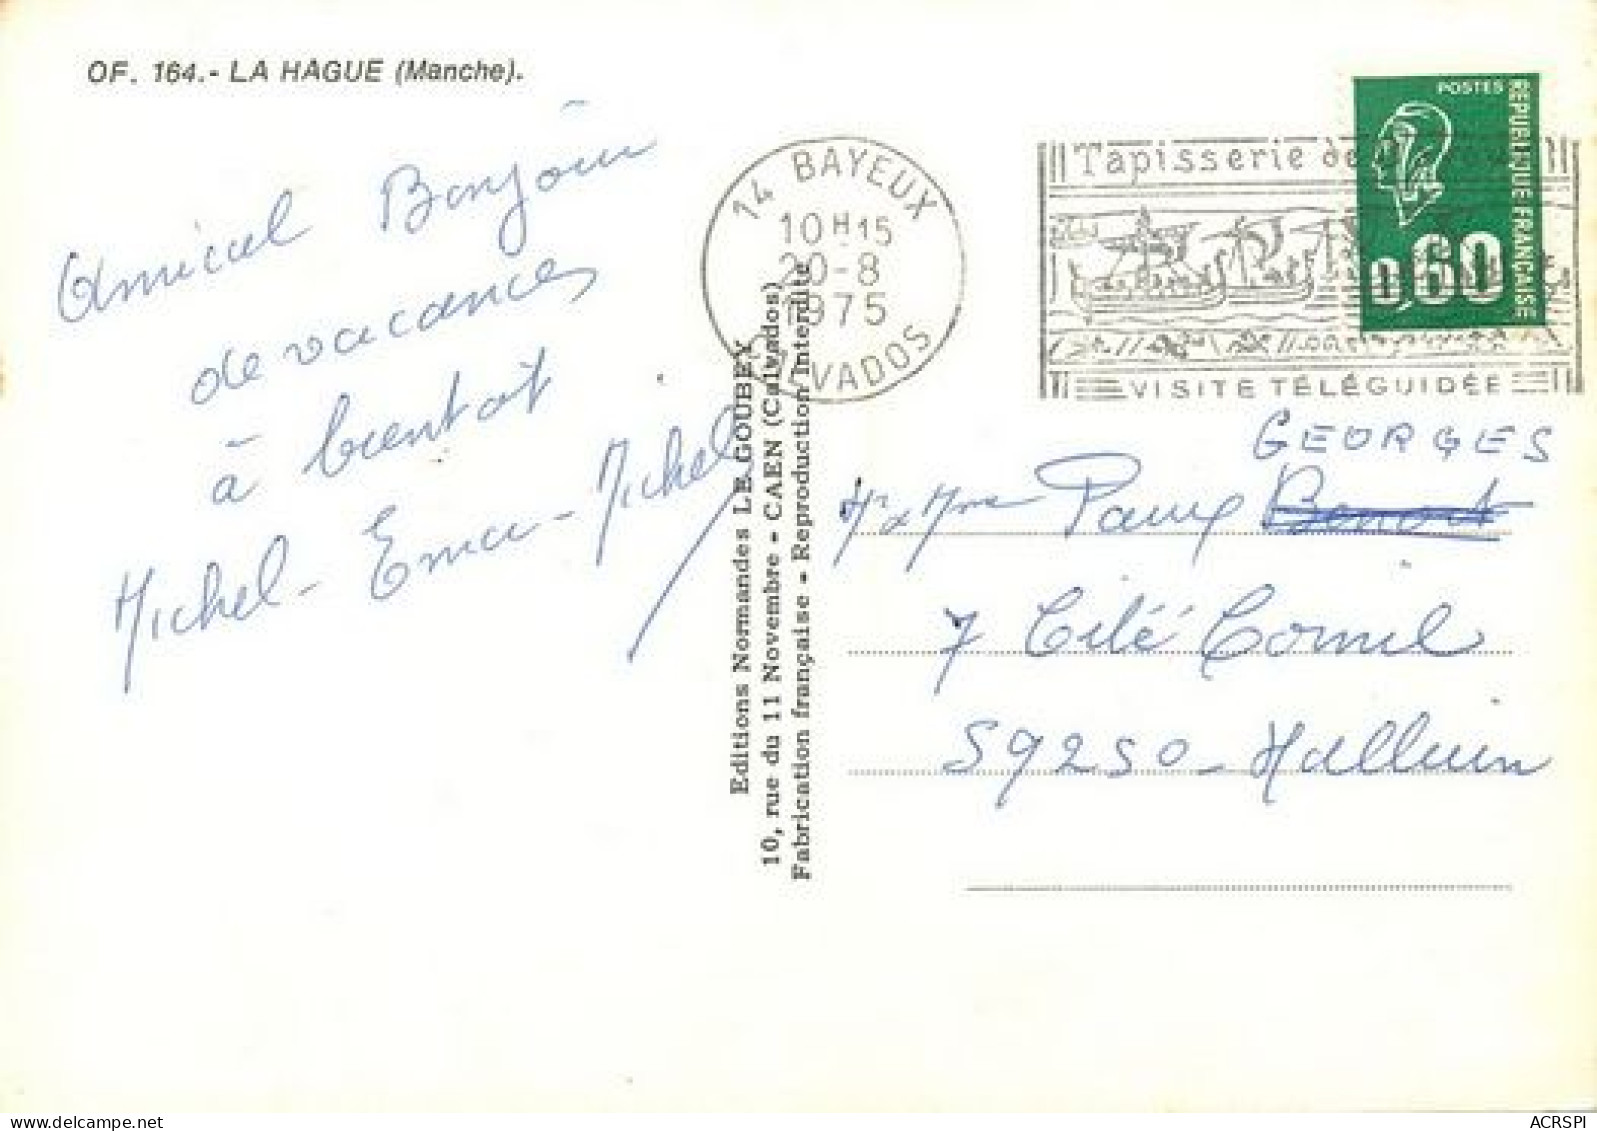 OF. 164.- LA HAGUE (Manche).
Amical Bonjour
de vacances
à bientot
Michel - Ema - Michel
Editions Normandes LE GOUBEY
10, rue du 11 Novembre - CAEN (Calvados)
Fabrication française - Reproduction interdite
14 BAYEUX
10H15
20-8
1975
CALVADOS
Tapisserie de
VISITE TÉLÉGUIDÉE
POSTES
REPUBLIQUE FRANÇAISE
0,60
GEORGES
Mr & Mme
7 Cité Cornil
59250 - Halluin
ACRSPI